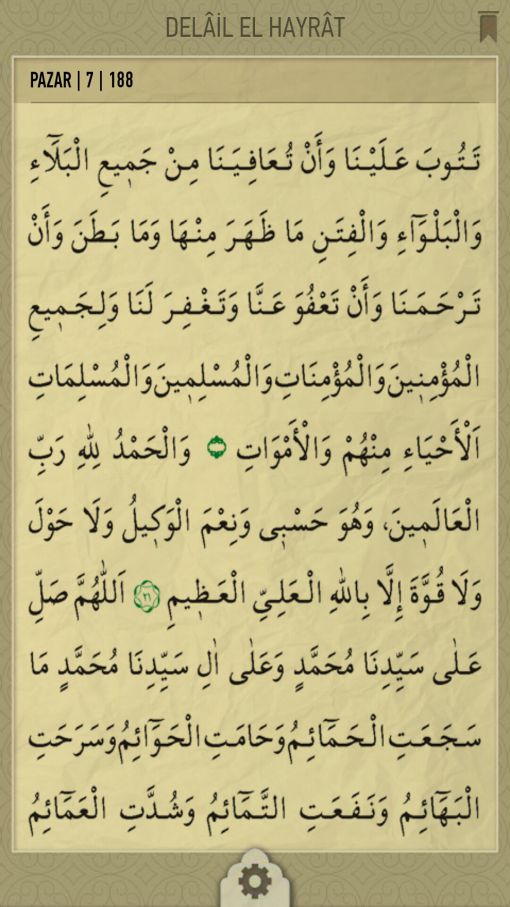 DELÂİL EL HAYRÂT
PAZAR | 7 | 188
تَتُوبَ عَلَيْنَا وَأَنْ تُعَافِيَنَا مِنْ جَمِيعِ الْبَلَٓاءِ
وَالْبَلْوَٓاءِ وَالْفِتَنِ مَا ظَهَرَ مِنْهَا وَمَا بَطَنَ وَأَنْ
تَرْحَمَنَا وَأَنْ تَعْفُوَ عَنَّا وَتَغْفِرَ لَنَا وَلِجَمِيعِ
الْمُؤْمِنِينَ وَالْمُؤْمِنَاتِ وَالْمُسْلِمِينَ وَالْمُسْلِمَاتِ
اَلْأَحْيَاءِ مِنْهُمْ وَالْأَمْوَاتِ وَالْحَمْدُ لِلّٰهِ رَبِّ
الْعَالَمِينَ، وَهُوَ حَسْبِى وَنِعْمَ الْوَكِيلُ وَلَا حَوْلَ
وَلَا قُوَّةَ إِلَّا بِاللّٰهِ الْعَلِيِّ الْعَظِيمِ ٢١ اَللّٰهُمَّ صَلِّ
عَلٰى سَيِّدِنَا مُحَمَّدٍ وَعَلٰى اٰلِ سَيِّدِنَا مُحَمَّدٍ مَا
سَجَعَتِ الْحَمَٓائِمُ وَحَامَتِ الْحَوَٓائِمُ وَسَرَحَتِ
الْبَهَٓائِمُ وَنَفَعَتِ التَّمَٓائِمُ وَشُدَّتِ الْعَمَٓائِمُ